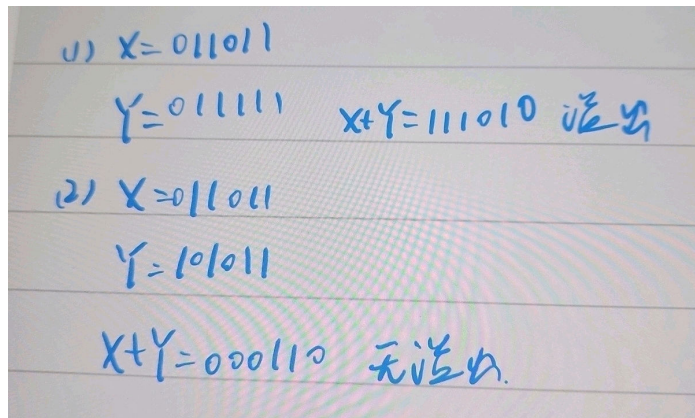 (1) X=011011
Y=011111 X+Y=111010 溢出
(2) X=011011
Y=101011
X+Y=000110 无溢出.